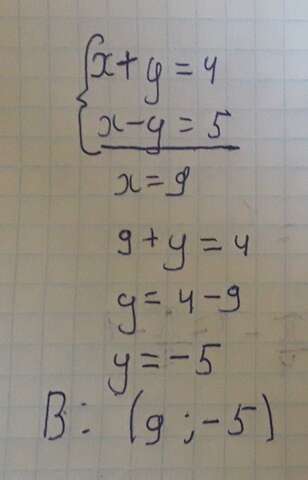 x+y=4
x-y=5
x=9
9+y=4
y=4-9
y=-5
В: (9;-5)